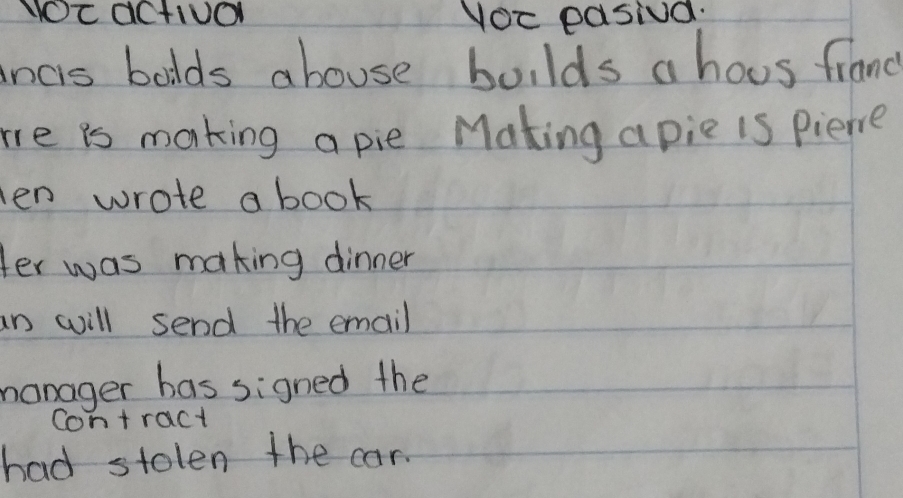 Voz activa Voz pasiva.
ncis builds a house builds a hous franc
rre is making a pie Making a pie is Pierre
en wrote a book
ter was making dinner
an will send the email
manager has signed the
contract
had stolen the car.